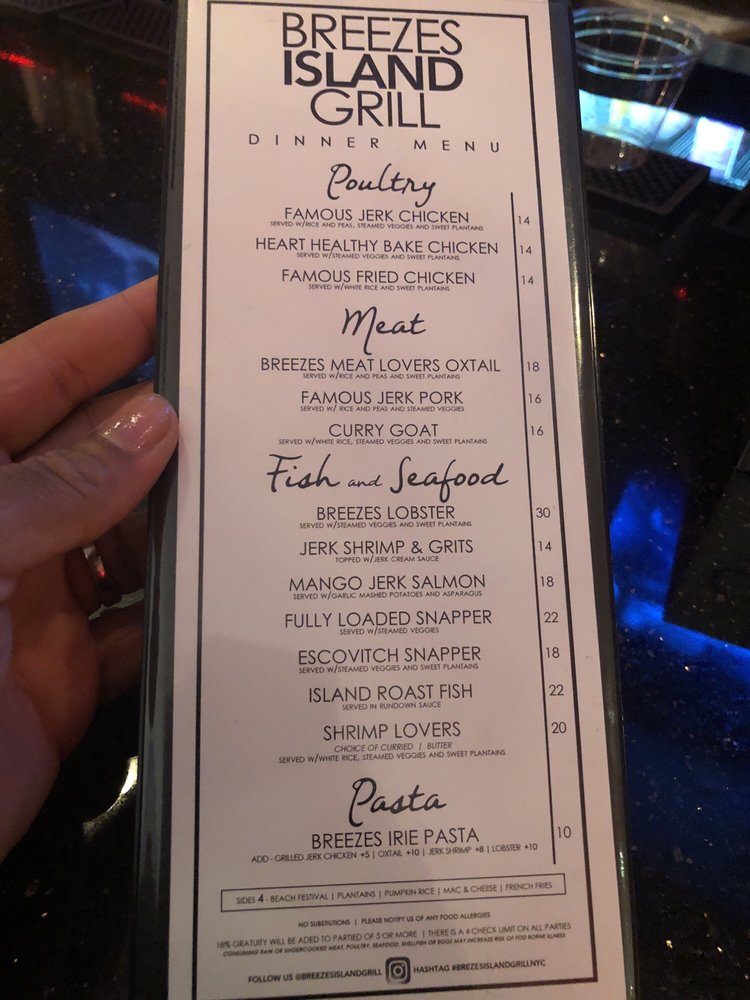 BREEZES
ISLAND
GRILL
DINNER MENU
Poultry
FAMOUS JERK CHICKEN 14
SERVED W/RICE AND PEAS, STEAMED VEGGIES AND SWEET PLANTAINS
HEART HEALTHY BAKE CHICKEN 14
SERVED W/STEAMED VEGGIES AND SWEET PLANTAINS
FAMOUS FRIED CHICKEN 14
SERVED W/WHITE RICE AND SWEET PLANTAINS
Meat
BREEZES MEAT LOVERS OXTAIL 18
SERVED W/RICE AND PEAS AND SWEET PLANTAINS
FAMOUS JERK PORK 16
SERVED W/ RICE AND PEAS AND STEAMED VEGGIES
CURRY GOAT 16
SERVED W/WHITE RICE, STEAMED VEGGIES AND SWEET PLANTAINS
Fish and Seafood
BREEZES LOBSTER 30
SERVED W/STEAMED VEGGIES AND SWEET PLANTAINS
JERK SHRIMP & GRITS 14
TOPPED W/JERK CREAM SAUCE
MANGO JERK SALMON 18
SERVED W/GARLIC MASHED POTATOES AND ASPARAGUS
FULLY LOADED SNAPPER 22
SERVED W/STEAMED VEGGIES
ESCOVITCH SNAPPER 18
SERVED W/STEAMED VEGGIES AND SWEET PLANTAINS
ISLAND ROAST FISH 22
SERVED IN RUNDOWN SAUCE
SHRIMP LOVERS 20
CHOICE OF CURRIED | BUTTER
SERVED W/WHITE RICE, STEAMED VEGGIES AND SWEET PLANTAINS
Pasta
BREEZES IRIE PASTA 10
ADD - GRILLED JERK CHICKEN +5 | OXTAIL +10 | JERK SHRIMP +8 | LOBSTER +10
SIDES 4 - BEACH FESTIVAL | PLANTAINS | PUMPKIN RICE | MAC & CHEESE | FRENCH FRIES
NO SUBSTIUTIONS | PLEASE NOTIFY US OF ANY FOOD ALLERGIES
18% GRATUITY WILL BE ADDED TO PARTIED OF 5 OR MORE | THERE IS A 4 CHECK LIMIT ON ALL PARTIES
CONSUMING RAW OR UNDERCOOKED MEAT, POULTRY, SEAFOOD, SHELLFISH OR EGGS MAT INCREASE RISK OF FOD BORNE ILLNESS
FOLLOW US @BREEZESISLANDGRILL HASHTAG #BREZESISLANDGRILLNYC